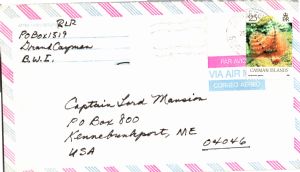 RLR
PO Box 1519
Grand Cayman
B.W.I.
25¢
CAYMAN ISLANDS
PAR AVION
VIA AIR MAIL
CORREO AEREO
Captain Lord Mansion
PO Box 800
Kennebunkport, ME
04046
USA